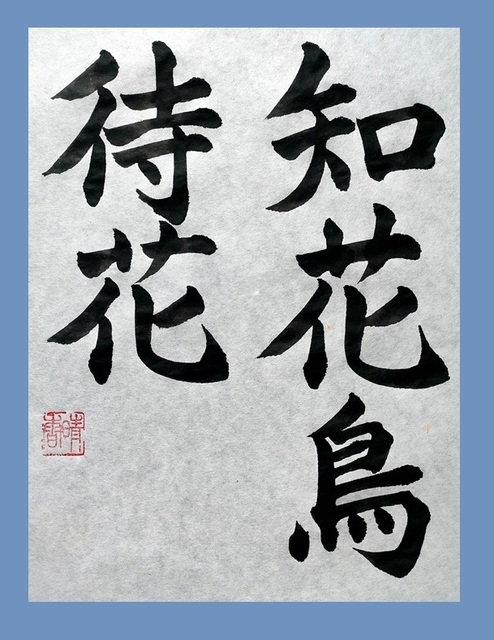 知花鳥
待花
晴書